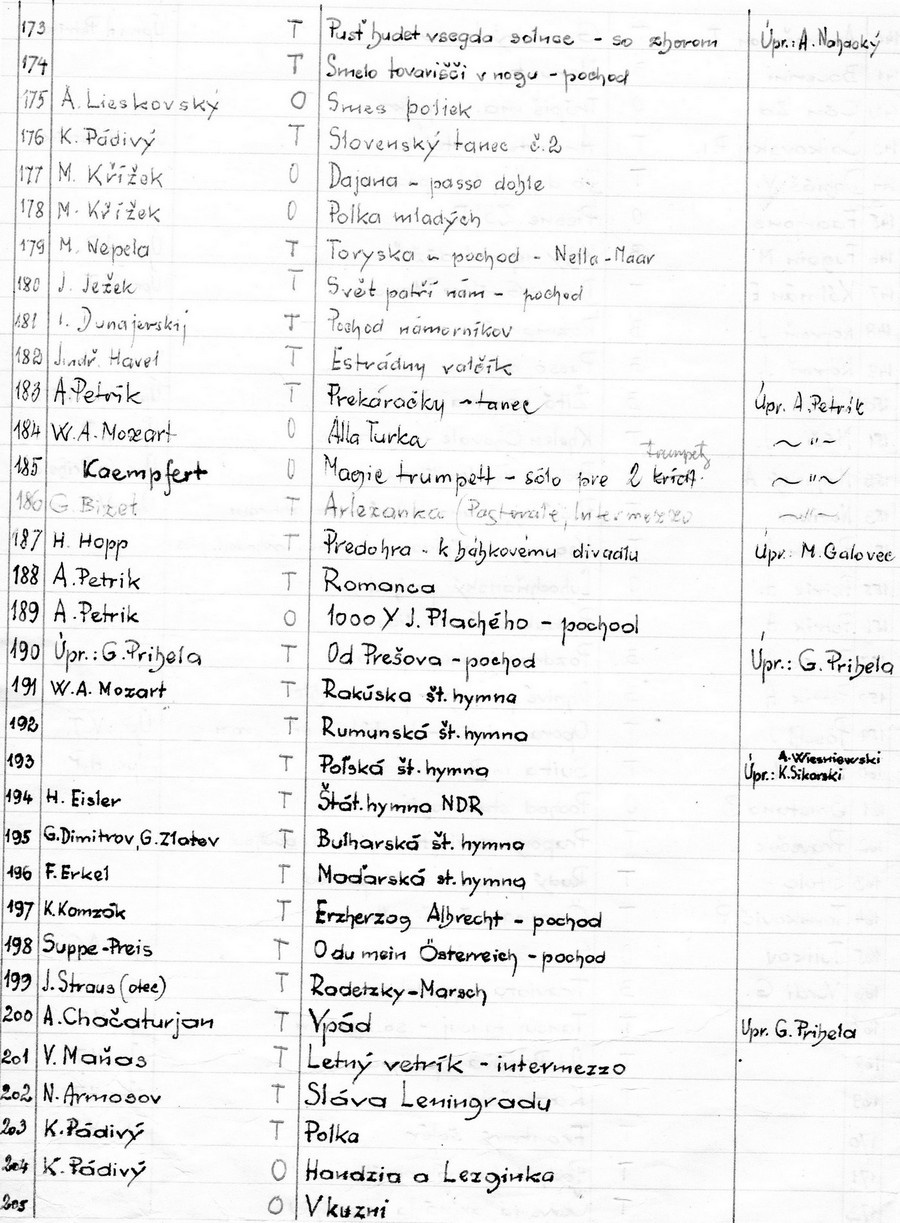 173 T Pusť budet vsegda solnce - so zborom Úpr.: A. Nahacký
174 T Smelo tovarišči v nogu - pochod
175 A. Lieskovský O Smes poliek
176 K. Pádivý T Slovenský tanec č.2
177 M. Křížek O Dajana - passo doble
178 M. Křížek O Polka mladých
179 M. Nepela T Toryska - pochod - Nella-Maar
180 J. Ježek T Svět patří nám - pochod
181 I. Dunajevskij T Pochod námorníkov
182 Jindř. Havel T Estrádny valčík
183 A. Petrík T Prekáračky - tanec Úpr. A. Petrík
184 W.A. Mozart O Alla Turka ~ " ~
trumpety
185 Kaempfert O Magie trumpett - sólo pre 2 krídl. ~ " ~
186 G. Bizet T Arlezanka (Pastorale, Intermezzo ~ " ~
187 H. Hopp T Predohra - k bábkovému divadlu Úpr. M. Galovec
188 A. Petrik T Romanca
189 A. Petrik O 1000 Y J. Plachého - pochod
190 Úpr.: G. Prihela T Od Prešova - pochod Úpr.: G. Prihela
191 W.A. Mozart T Rakúska št. hymna
192 T Rumunská št. hymna
193 T Poľská št. hymna A. Wiesniewski
Úpr.: K. Sikorski
194 H. Eisler T Štát. hymna NDR
195 G. Dimitrov, G. Zlatev T Bulharská št. hymna
196 F. Erkel T Maďarská st. hymna
197 K. Komzák T Erzherzog Albrecht - pochod
198 Suppe-Preis T O du mein Österreich - pochod
199 J. Straus (otec) T Radetzky-Marsch
200 A. Chačaturjan T Vpád Upr. G. Prihela
201 V. Maňas T Letný vetrík - intermezzo
202 N. Armosov T Sláva Leningradu
203 K. Pádivý T Polka
204 K. Pádivý O Handzia a Lezginka
205 O V kuzni